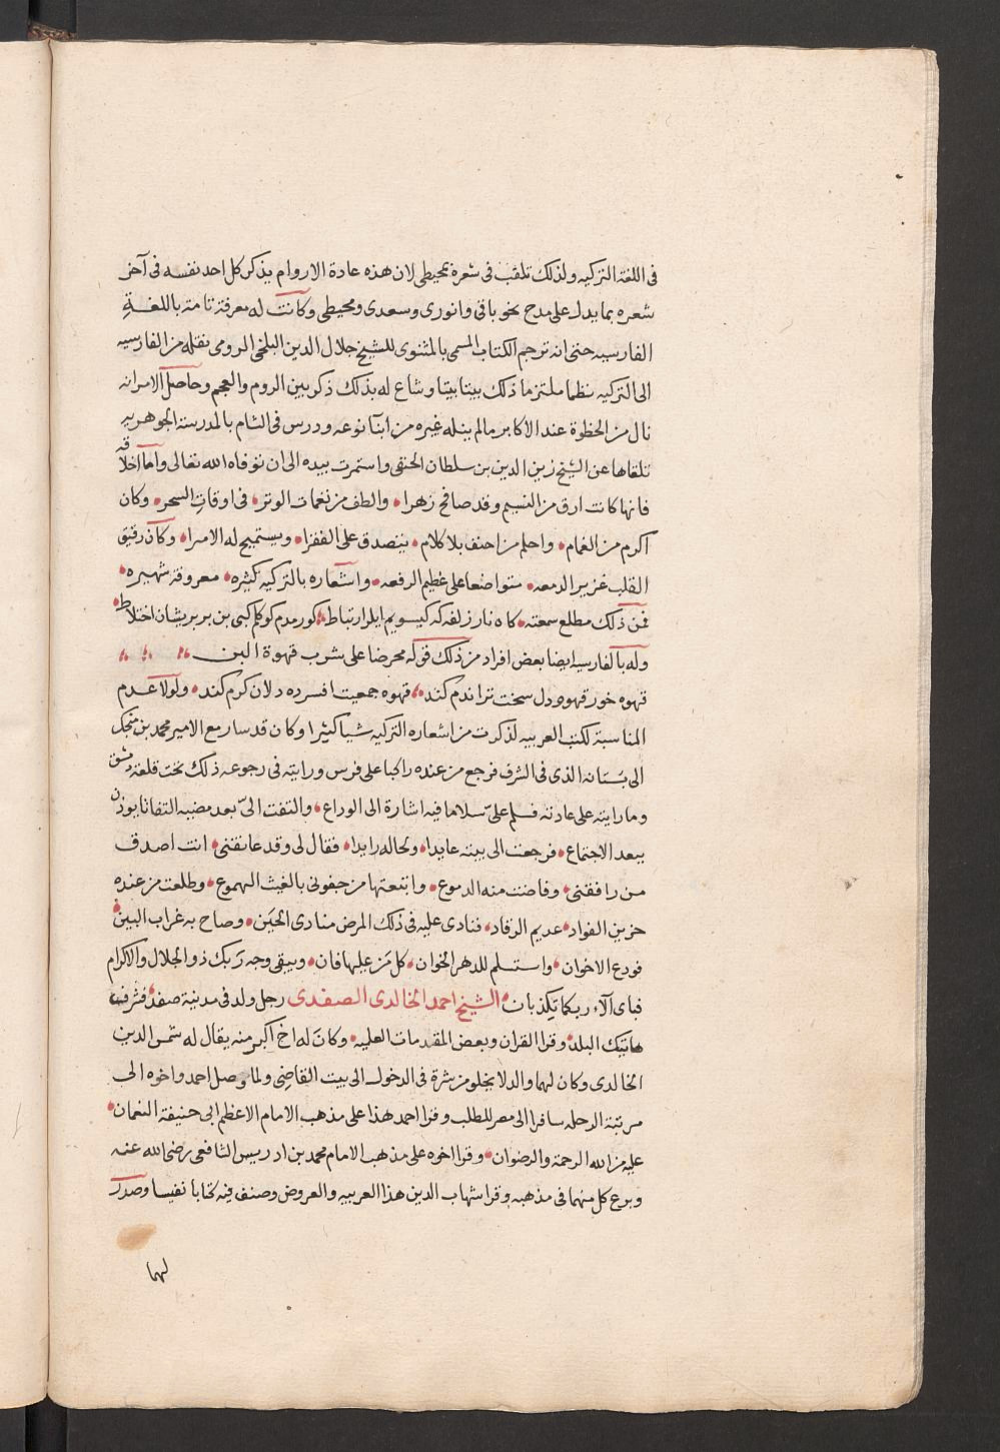 فى اللغة التركيه ولذلك تلقب فى شعره بمحيطى لان هذه عادة الاروام يذكر كل احد نفسه فى آخر
شعره بما يدل على مدح نحو باقى وانورى وسعدى ومحيطى وكانت له معرفة تامة باللغــة
الفارسيه حتى انه ترجم الكتاب المسمى بالمثنوى للشيخ جلال الدين البلخى الرومى نقله من الفارسيه
الى التركيه نظما ملتزما ذلك بيتا بيتا وشاع له بذلك ذكر بين الروم والعجم وحاصل الامر انه
نال من الحظوة عند الاكابر مالم ينله غيره من ابنآ نوعه ودرس فى الشام بالمدرسة الجوهريه
تلقاها عن الشيخ زين الدين بن سلطان الحنفى واستمرت بيده الى ان توفاه الله تعالى واما اخلاقه
فانها كانت ارق من النسيم وقد صافح زهرا، والطف من نغمات الوتر، فى اوقات السحر، وكان
اكرم من الغمام، واحلم من احنف بلا كلام، يتصدق على الفقرا، ويستميح له الامرا، وكان رقيق
القلب غزير الدمعه، متواضعا على عظيم الرفعه، واشعاره بالتركيه كثيره، معروفة شهيره،
فمن ذلك مطلع سمعته،
وله بالفارسيه ايضا بعض افراد من ذلك قوله محرضا على شرب قهوة البن
قهوه خور قهوه دل سخت ترا نرم كند، قهوه جمعيت افسرده دلان كرم كند، ولولا عدم
المناسبة لكتب العربيه لذكرت من اشعاره التركيه شيأ كثيرا وكان قد سار مع الامير محمد بن منجك
الى بستانه الذى فى الشرف فرجع من عنده راكبا على فرس ورايته فى رجوعه ذلك تحت قلعة دمشق
وما رايته على عادته فسلم علىّ سلاما فيه اشارة الى الوداع، والتفت الىّ بعد مضيه التفاتا يوذن
ببعد الاجتماع، فرجعت الى بيته عايدا، ولحاله رايدا، فقال لى وقد عانقنى، انت اصدق
من رافقنى، وفاضت منه الدموع، واتبعتها من جفونى بالغيث الهموع، وطلعت من عنده
حزين الفواد، عديم الرقاد، فنادى عليه فى ذلك المرض منادى الحَين، وصاح به غراب البين،
فودع الاخوان، واستسلم للدهر الخوان، كل من عليها فان، ويبقى وجه ربك ذو الجلال والاكرام
فباى آلاء ربكما تكذبان، الشيخ احمد الخالدى الصفدى رجل ولد فى مدينة صفد، فشرفت
هاتيك البلد، وقرا القران وبعض المقدمات العلميه، وكان له اخ اكبر منه يقال له شمس الدين
الخالدى وكان لهما والد لا يخلو من شرة فى الدخول الى بيت القاضى ولما وصل احمد واخوه الى
مرتبة الرحله سافرا الى مصر للطلب وقرا احمد هذا على مذهب الامام الاعظم ابى حنيفة النعمان،
عليه من الله الرحمة والرضوان، وقرا اخوه على مذهب الامام محمد بن ادريس الشافعى رضى الله عنه
وبرع كل منهما فى مذهبه وقرا شهاب الدين هذا العربيه والعروض وصنف فيه كتابا نفيسا وصدر
لهما